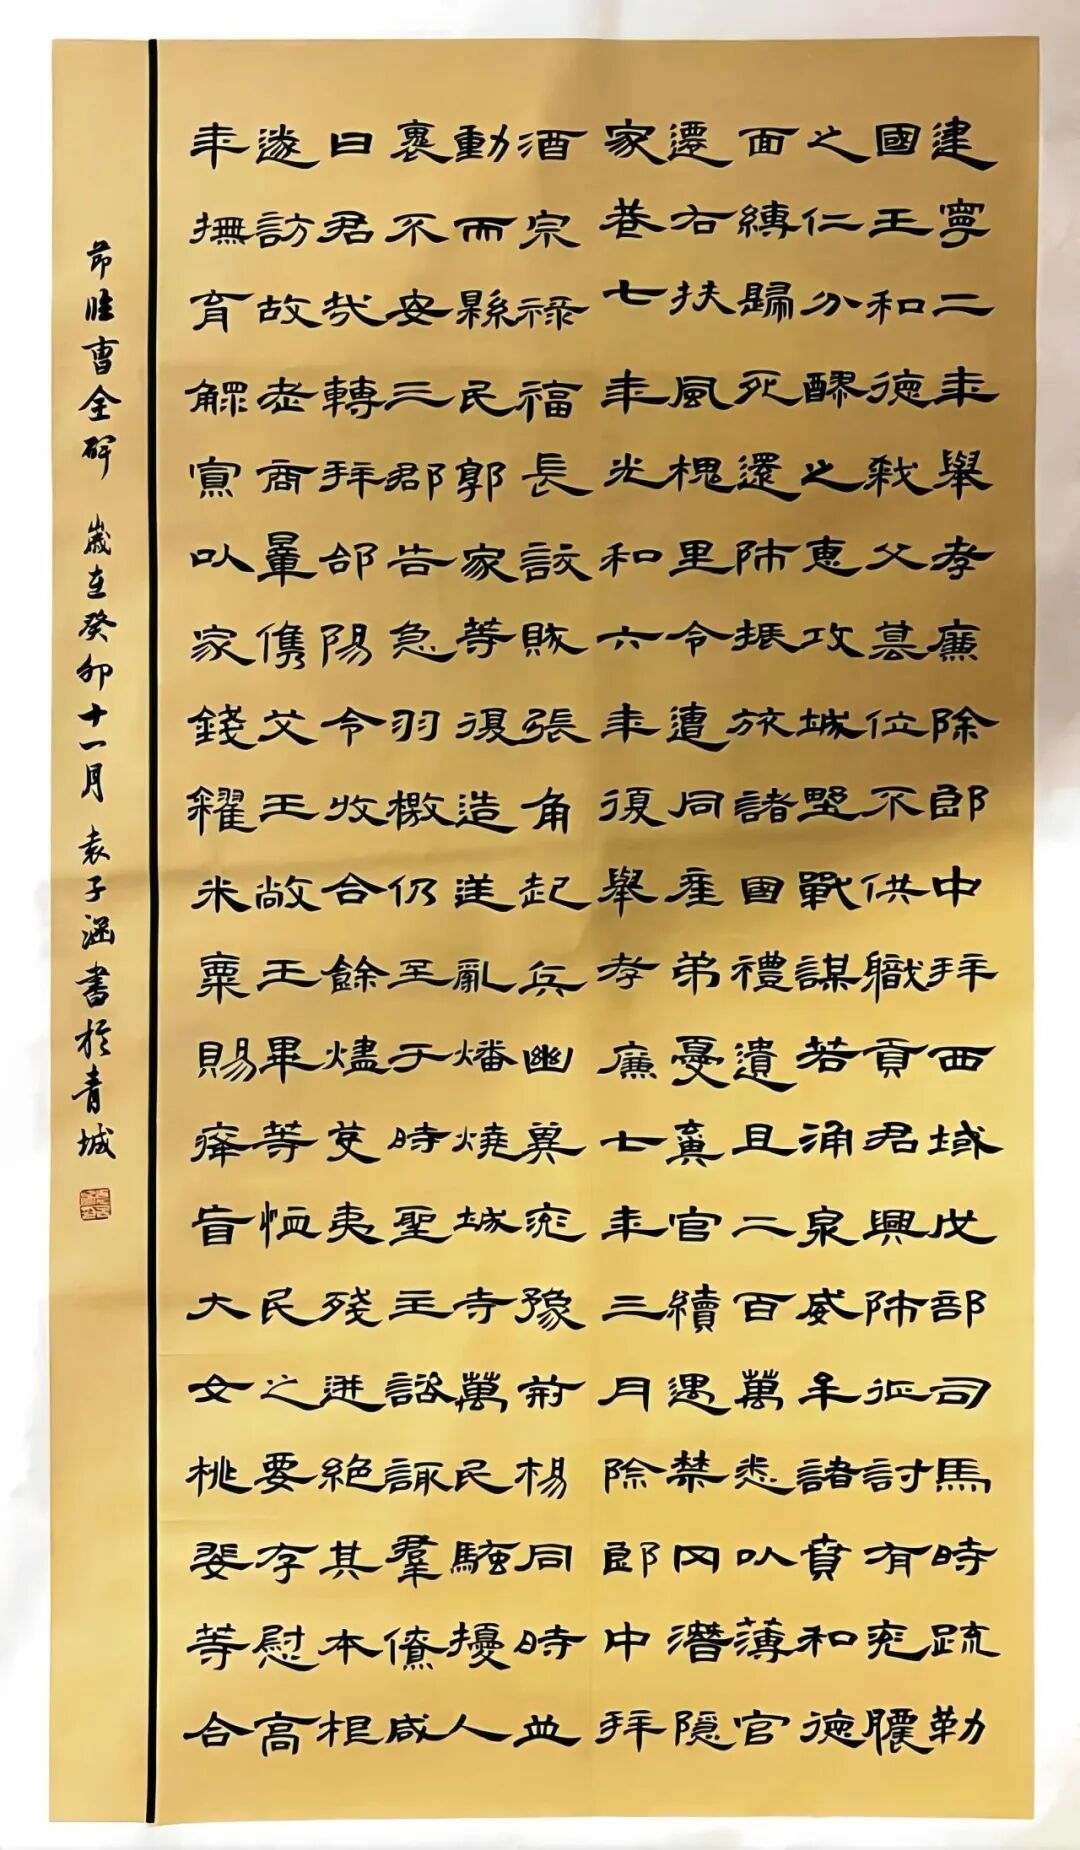 建寧二年舉孝廉除郎中拜西域戊部司馬時疏勒
國王和德弒父篡位不供職貢君興師征討有兗膿
之仁分醪之惠攻城野戰謀若涌泉威牟諸賁和德
面縛歸死還師振旅諸國禮遺且二百萬悉以薄官
遷右扶風槐里令遭同產弟憂棄官續遇禁冈潛隱
家巷七年光和六年復舉孝廉七年三月除郎中拜
酒宗祿福長訞賊張角起兵幽冀兗豫荊楊同時並
動而縣民郭家等復造逆亂燔燒城寺萬民騷擾人
裹不安三郡告急羽檄仍至于時聖主諮諏羣僚咸
曰君哉轉拜郃陽令收合餘燼芟夷殘迸絕其本根
遂訪故老商暈儁艾王敞王畢等恤民之要存慰高
年撫育鰥寡以家錢糴米粟賜癃盲大女桃婓等合
節臨曹全碑 歲在癸卯十一月 袁子涵書於青城